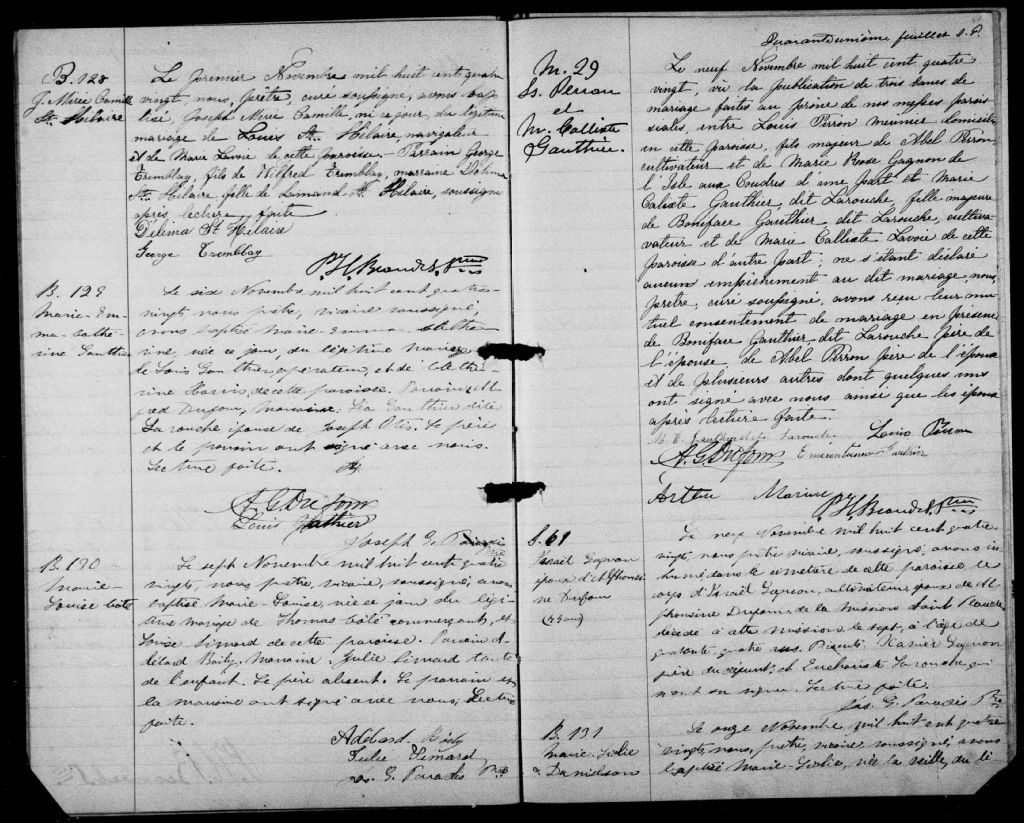 B. 128
J. Mérée Camille
St. Hilaire
Le premier Novembre mil huit cent quatre
vingt, nous, prêtre, curé soussigné, avons bap
tisé, Joseph Mérée Camille, né ce jour, du légitime
mariage de Louis St. Hilaire, navigateur
et de Marie Lavoie de cette paroisse. Parrain George
Tremblay, fils de Wilfred Tremblay, marraine Délima
St. Hilaire, fille de St. Hilaire, soussignés
après lecture faite
Délima St. Hilaire
George Tremblay
B. 129
Marie-Em-
ma-Cathe-
rine Gauthier
Le six Novembre mil huit cent quatre-
vingt nous prêtre, vicaire soussigné,
avons baptisé Marie-Emma-Cathe-
rine, née ce jour, du légitime mariage
de Louis Gauthier opérateur, et de Cathe-
rine de cette paroisse. Parrain Al-
fred Dufour, Marraine, Léa Gauthier dite
Larouche épouse de Joseph Otis. Le père
et le parrain ont signé avec nous.
Lecture faite.
A. G. Dufour
Louis Gauthier
Joseph G. Paradis
Ptre
B. 130
Marie
Louise Côté
Le sept Novembre mil huit cent quatre
vingt, nous, prêtre, vicaire, soussigné, avons
baptisé Marie-Louise, née ce jour du légi-
time mariage de Thomas Côté commerçant, et
Louise Simard de cette paroisse. Parrain A-
délard Boily, Marraine Julie Simard tante
de l'enfant. Le père absent. Le parrain et
la marraine ont signé avec nous; Lecture
faite.
Adélard Boily
Julie Simard
Jos. G. Paradis Ptre
Quarantunième feuillet
M. 29
Ls. Perron
et
M. Calliste
Gauthier.
Le neuf Novembre mil huit cent quatre
vingt, vu la publication de trois bans de
mariage faites au prône de nos messes parois
siales, entre Louis Perron meunier domicilié
en cette paroisse, fils majeur de Abel Perron
cultivateur et de Marie Rose Gagnon de
l'Isle aux Coudres d'une part et Marie
Caliste Gauthier, dit Larouche, fille majeure
de Boniface Gauthier dit Larouche, cultiva-
vateur et de Marie Calliste Lavoie de cette
paroisse d'autre part; ne s'étant déclaré
aucun empêchement au dit mariage, nous,
prêtre, curé soussigné, avons reçu leur mu
tuel consentement de mariage en présence
de Boniface Gauthier, dit Larouche, père de
l'épouse, de Abel Perron père de l'époux
et de plusieurs autres dont quelques uns
ont signé avec nous ainsi que les époux
après lecture faite.
M. C. Gauthier dite Larouche Louis Perron
A. G. Dufour Gauthier
S. 61
Israil Gagnon
époux d'Alphonsi
ne Dufour
(44 ans)
Le neuf Novembre mil huit cent quatre
vingt, nous prêtre vicaire, soussigné, avons in-
humé dans le cimetière de cette paroisse le
corps d'Israil Gagnon, cultivateur, époux de Al-
phonsine Dufour, de la mission Saint Placide
décédé à cette mission le sept, à l'âge de
quarante quatre ans. Présents: Xavier Gagnon
père du défunt, et Euchariste Larouche, qui
n'ont su signer. Lecture faite.
Jos. G. Paradis Ptre
B. 131
Marie-Julie
Danielson
Le onze Novembre, mil huit cent quatre
vingt, nous, prêtre, vicaire, soussigné, avons
baptisé Marie-Julie, née la veille, du lé